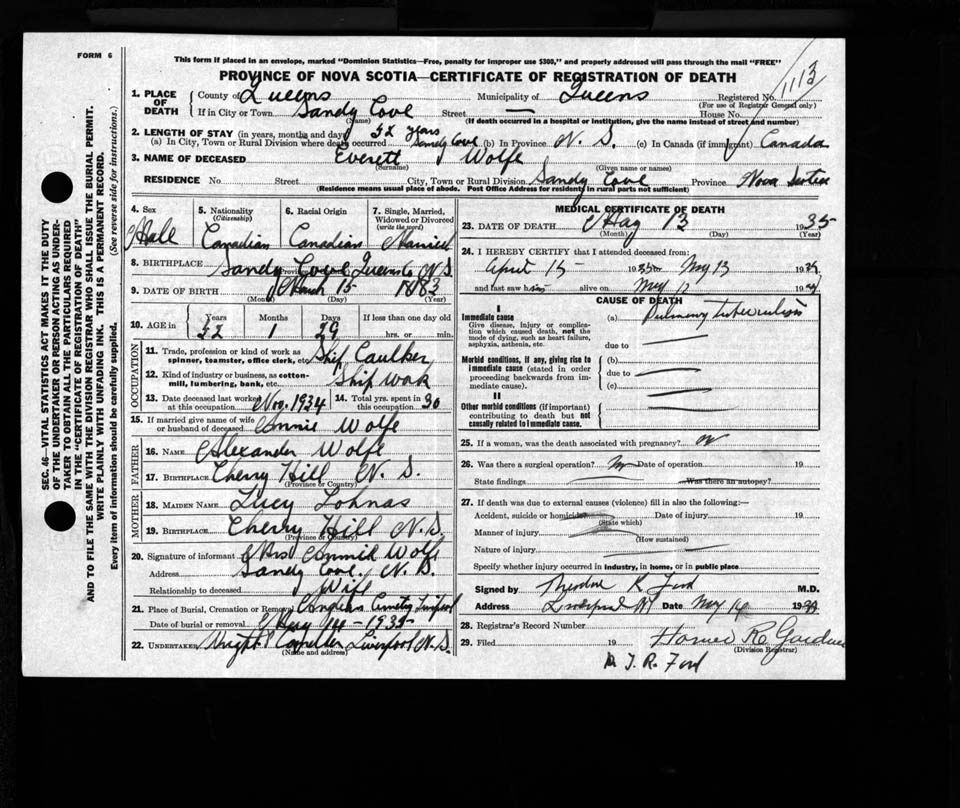 FORM 6
This form if placed in an envelope, marked "Dominion Statistics—Free, penalty for improper use $300," and properly addressed will pass through the mail "FREE"
PROVINCE OF NOVA SCOTIA—CERTIFICATE OF REGISTRATION OF DEATH
1113
1. PLACE OF DEATH County of Queens Municipality of Queens Registered No.
(For use of Registrar General only)
If in City or Town Sandy Cove Street — House No.
(Name) (If death occurred in a hospital or institution, give the name instead of street and number)
2. LENGTH OF STAY (in years, months and days) 52 Years
(a) In City, Town or Rural Division where death occurred Sandy Cove (b) In Province N. S. (c) In Canada (if immigrant) Canada
3. NAME OF DECEASED Everett Wolfe
(Surname) (Given name or names)
RESIDENCE No. Street City, Town or Rural Division Sandy Cove Province Nova Scotia
(Residence means usual place of abode. Post Office Address for residents in rural parts not sufficient)
4. Sex Male
5. Nationality (Citizenship) Canadian
6. Racial Origin Canadian
7. Single, Married, Widowed or Divorced (write the word) Married
8. BIRTHPLACE Sandy Cove Queens Co N.S.
9. DATE OF BIRTH March 15 1883
(Month) (Day) (Year)
10. AGE in Years 52 Months 1 Days 29 If less than one day old hrs. or min.
OCCUPATION
11. Trade, profession or kind of work as spinner, teamster, office clerk, etc. Ship Caulker
12. Kind of industry or business, as cotton-mill, lumbering, bank, etc. Ship Work
13. Date deceased last worked at this occupation Nov. 1934 14. Total yrs. spent in this occupation 30
15. If married give name of wife or husband of deceased Connie Wolfe
FATHER
16. NAME Alexander Wolfe
17. BIRTHPLACE Cherry Hill N. S.
(Province or Country)
MOTHER
18. MAIDEN NAME Lucy
19. BIRTHPLACE Cherry Hill N.S.
(Province or Country)
20. Signature of informant Mrs Connie Wolfe
Address Sandy Cove, N. S.
Relationship to deceased Wife
21. Place of Burial, Cremation or Removal Cemetery Liverpool
Date of burial or removal May 14 - 1935
22. UNDERTAKER Liverpool N.S.
(Name and address)
MEDICAL CERTIFICATE OF DEATH
23. DATE OF DEATH May 13 1935
(Month) (Day) (Year)
24. I HEREBY CERTIFY that I attended deceased from:
April 15 1935 to May 13 19
and last saw him alive on May 12 19
CAUSE OF DEATH
I
Immediate cause
Give disease, injury or complication which caused death, not the mode of dying, such as heart failure, asphyxia, asthenia, etc.
(a) Pulmonary tuberculosis
due to
Morbid conditions, if any, giving rise to immediate cause (stated in order proceeding backwards from immediate cause)
(b)
due to
(c)
II
Other morbid conditions (if important) contributing to death but not causally related to immediate cause.
25. If a woman, was the death associated with pregnancy?
26. Was there a surgical operation? No Date of operation 19
State findings Was there an autopsy?
27. If death was due to external causes (violence) fill in also the following:—
Accident, suicide or homicide? Date of injury 19
(State which)
Manner of injury
(How sustained)
Nature of injury
Specify whether injury occurred in industry, in home, or in public place
Signed by Theodore R Ford M.D.
Address Liverpool NS Date May 14 19
28. Registrar's Record Number
29. Filed 19 Homer R.
(Division Registrar)
T. R. Ford
SEC. 46—VITAL STATISTICS ACT MAKES IT THE DUTY
OF THE UNDERTAKER OR PERSON ACTING AS UNDER-
TAKER TO OBTAIN ALL THE PARTICULARS REQUIRED
IN THE "CERTIFICATE OF REGISTRATION OF DEATH"
AND TO FILE THE SAME WITH THE DIVISION REGISTRAR WHO SHALL ISSUE THE BURIAL PERMIT.
WRITE PLAINLY WITH UNFADING INK. THIS IS A PERMANENT RECORD.
Every item of information should be carefully supplied. (See reverse side for instructions.)